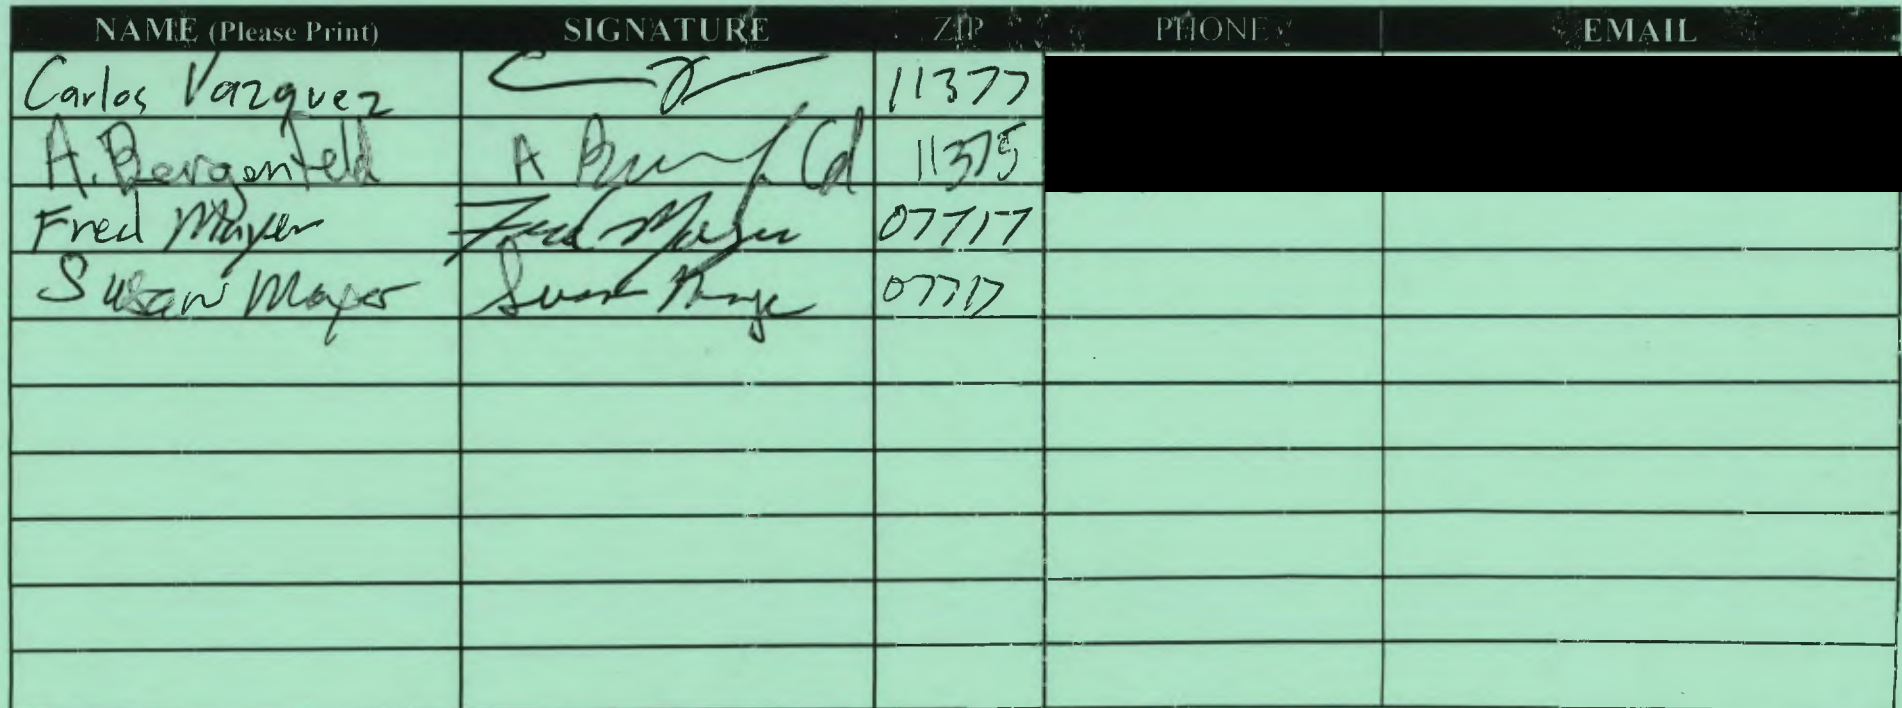 NAME (Please Print) SIGNATURE ZIP PHONE EMAIL
Carlos Vazquez 11377
A. Bergenfeld A 11375
Fred Mayer Fred Mayer 07717
Susan Mayer Susan 07717